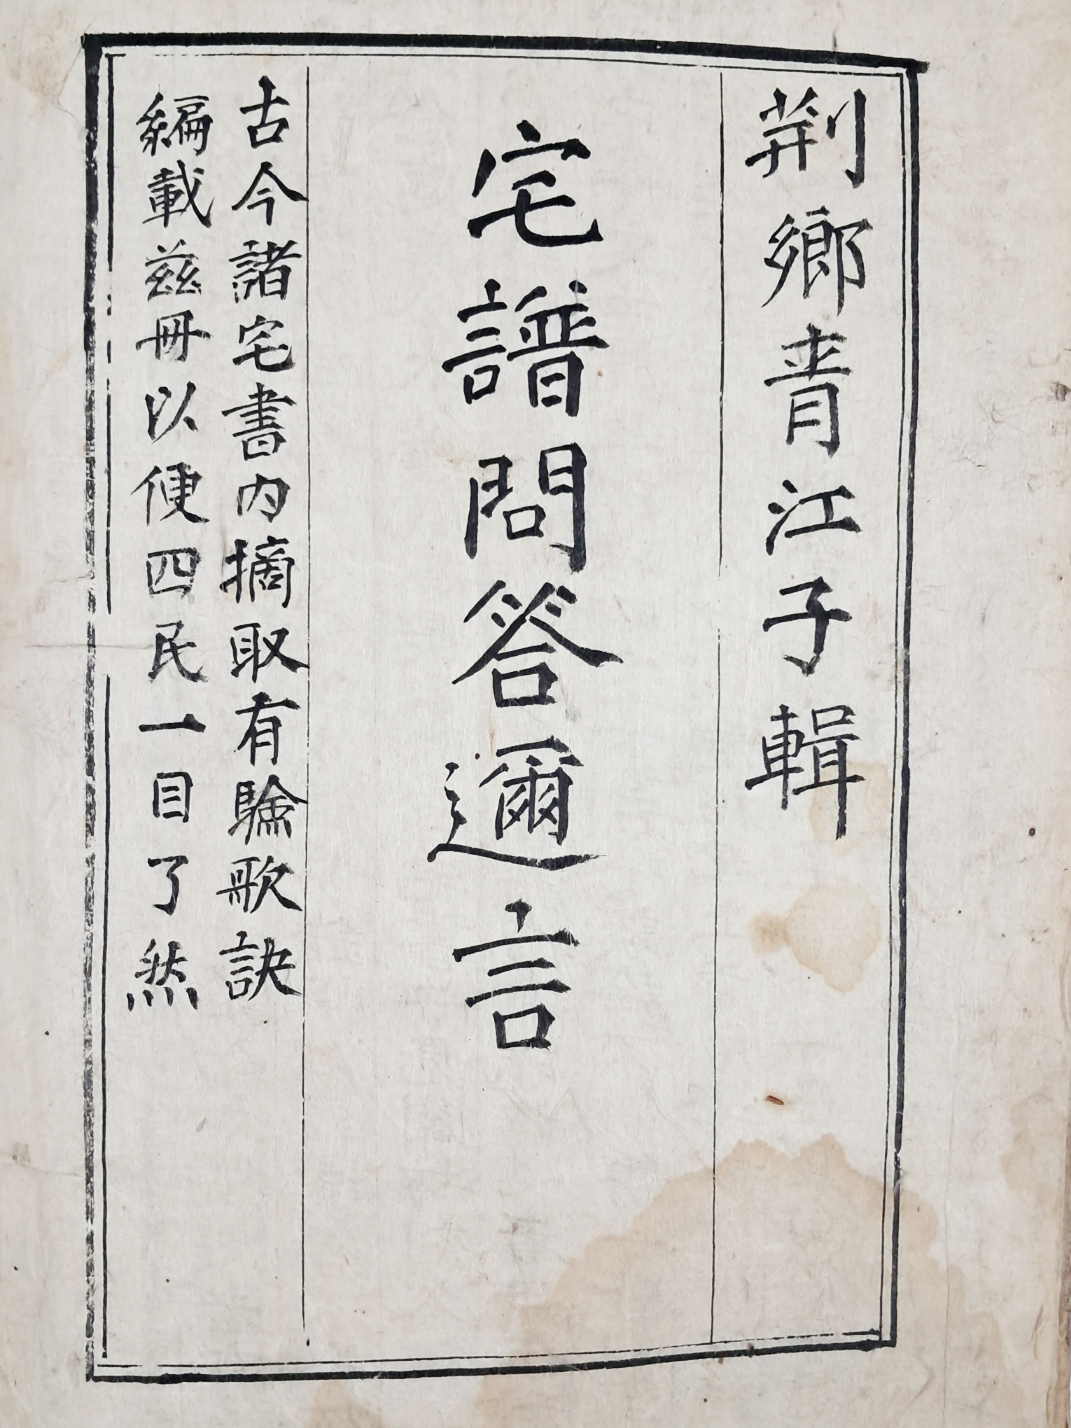 荆鄉青江子輯
宅譜問答邇言
古今諸宅書內摘取有驗歌訣
編載茲冊以便四民一目了然